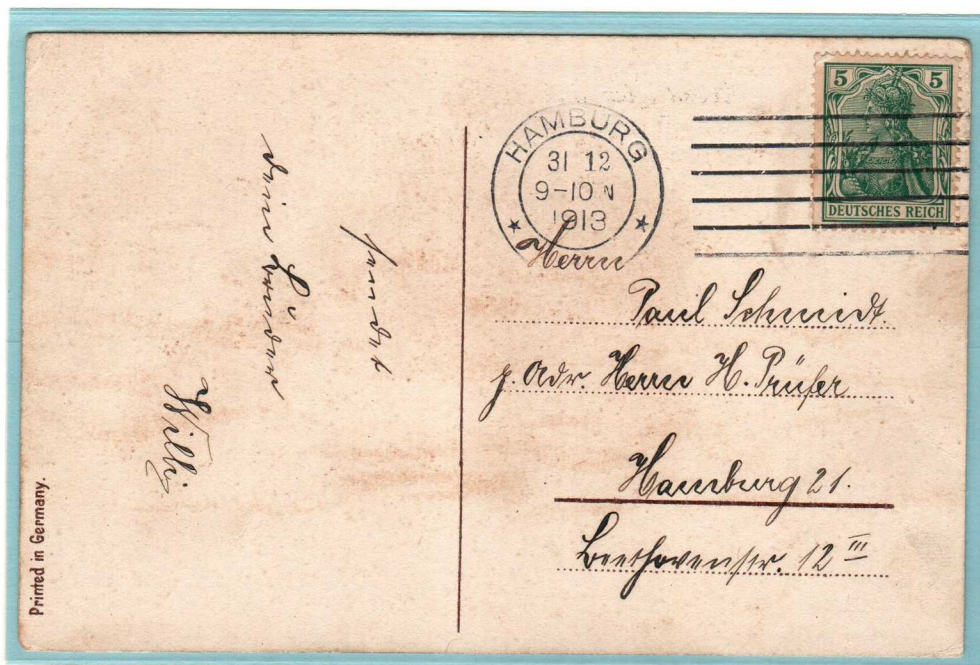 sendet
dein Bruder
Willy
Printed in Germany.
HAMBURG
31 12
9-10 N
1913
5 5
DEUTSCHES REICH
Herrn
Paul Schmidt
p. Adr. Herrn H. Prüfer
Hamburg 21.
Beethovenstr. 12 III